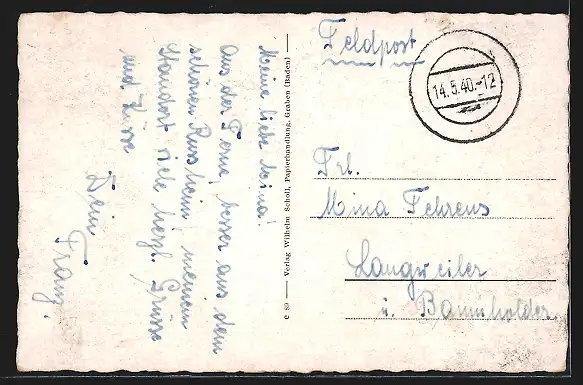 Meine liebe Mina!
aus der Ferne, besser aus dem
schönen Russheim meinem
Standort viele herzl. Grüsse
und Küsse
Dein
Franz.
e 89 — Verlag Wilhelm Scholl, Papierhandlung, Graben (Baden) —
Feldpost
14.5.40.-12
Frl.
Mina Fehrens
Langweiler
ü. Baumholder